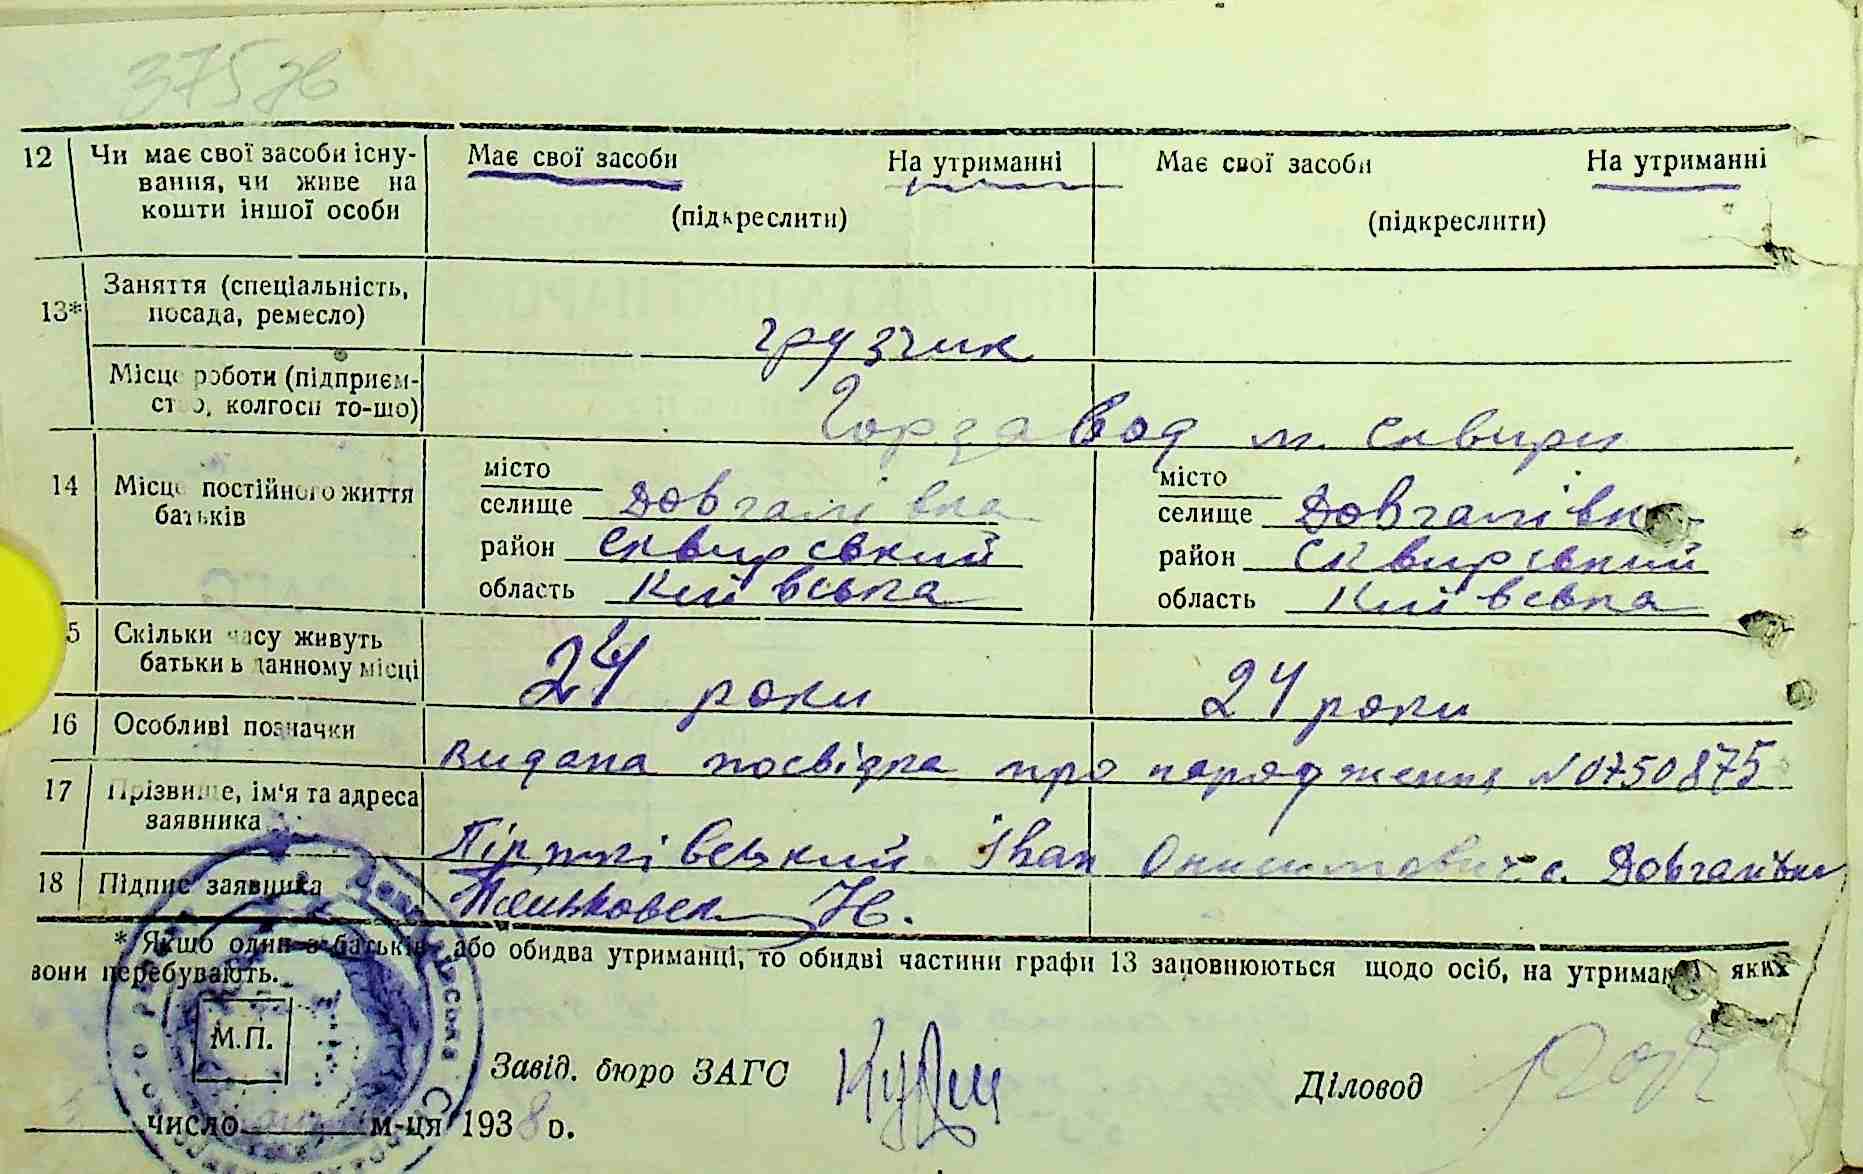 375
12 Чи має свої засоби існу- Має свої засоби На утриманні Має свої засоби На утриманні
вання, чи живе на
кошти іншої особи (підкреслити) (підкреслити)
13* Заняття (спеціальність,
посада, ремесло) грузчик
Місце роботи (підприєм-
ство, колгосп то-що) Горзавод м. Сквири
14 Місце постійного життя місто місто
батьків селище Довгалівка селище Довгалівка
район Сквирський район Сквирський
область Київська область Київська
5 Скільки часу живуть
батьки в данному місці 24 роки 24 роки
16 Особливі позначки
видана посвідка про народження №0750875
17 Прізвище, ім'я та адреса
заявника Іван Онисимович с. Довгалівка
18 Підпис заявника
* Якщо один з батьків або обидва утриманці, то обидві частини графи 13 заповнюються щодо осіб, на утриманні яких
вони перебувають.
М.П.
Завід. бюро ЗАГС Діловод
число м-ця 1938 р.